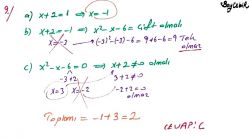 9)
a) x+2=1 ⇒ x=-1
b) x+2=-1 ⇒ x²-x-6=Çift olmalı
x=-3 → (-3)²-(-3)-6=9+6-6=9 Tek
olmaz
c) x²-x-6=0 ⇒ x+2≠0 olmalı
-3 +2
x=3 x=-2
3+2≠0
-2+2=0
olmaz
Toplamı = -1+3=2
CEVAP: C